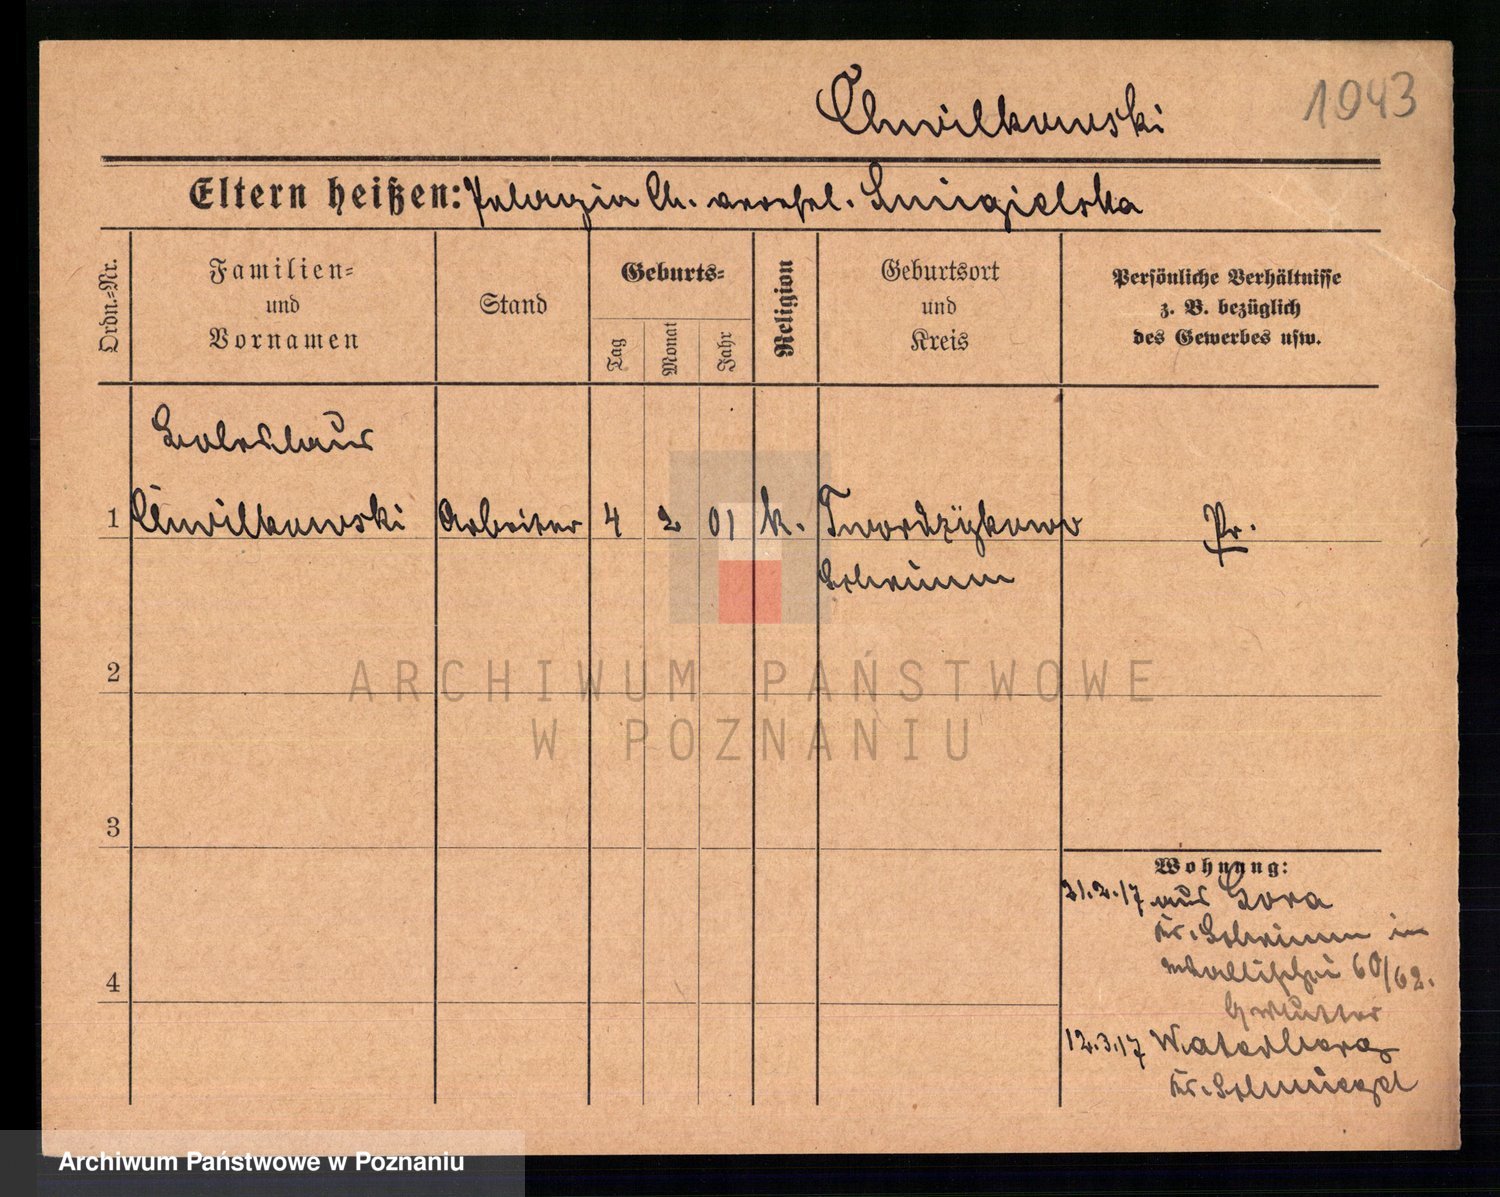 1943
Chwilkowski
Eltern heißen: Pelagia Ch. verehel. Smigielska
Ordn.-Nr.
Familien-
und
Vornamen
Stand
Geburts-
Tag
Monat
Jahr
Religion
Geburtsort
und
Kreis
Persönliche Verhältnisse
z. B. bezüglich
des Gewerbes usw.
Boleslaus
1 Chwilkowski Arbeiter 4 2 01 k. Twordzÿkowo Pr.
Schrimm
2
3
4
Wohnung:
21.2.17 aus Gora
Kr. Schrimm in
Wallischei 60/62.
b/Mutter
12.3.17 Waterberg
Kr. Schmiegel
ARCHIWUM PAŃSTWOWE
W POZNANIU
Archiwum Państwowe w Poznaniu